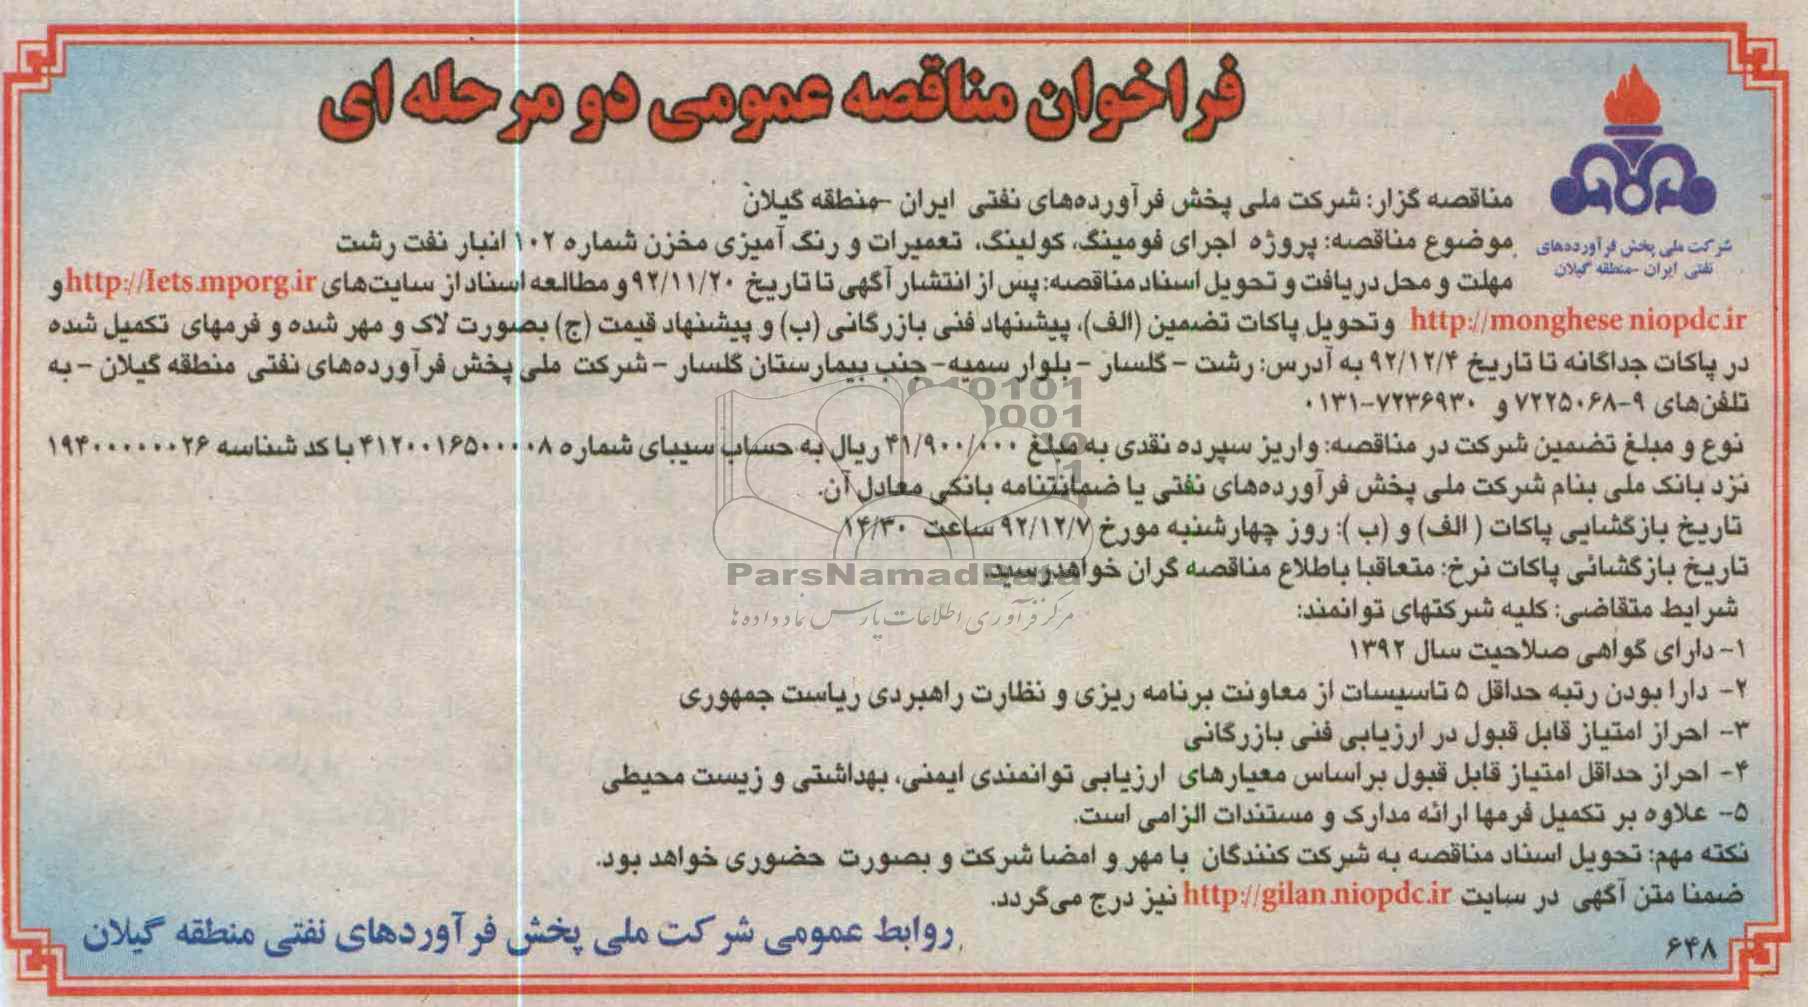 فراخوان مناقصه عمومی دو مرحله ای
شرکت ملی پخش فرآورده‌های
نفتی ایران -منطقه گیلان
مناقصه گزار: شرکت ملی پخش فرآورده‌های نفتی ایران -منطقه گیلان
موضوع مناقصه: پروژه اجرای فومینگ، کولینگ، تعمیرات و رنگ آمیزی مخزن شماره ۱۰۲ انبار نفت رشت
مهلت و محل دریافت و تحویل اسناد مناقصه: پس از انتشار آگهی تا تاریخ ۹۲/۱۱/۲۰ و مطالعه اسناد از سایت‌های http://Iets.mporg.ir و
http://monghese niopdc.ir وتحویل پاکات تضمین (الف)، پیشنهاد فنی بازرگانی (ب) و پیشنهاد قیمت (ج) بصورت لاک و مهر شده و فرمهای تکمیل شده
در پاکات جداگانه تا تاریخ ۹۲/۱۲/۴ به آدرس: رشت - گلسار - بلوار سمیه- جنب بیمارستان گلسار - شرکت ملی پخش فرآورده‌های نفتی منطقه گیلان - به
تلفن‌های ۹-۷۲۲۵۰۶۸ و ۷۲۳۶۹۳۰-۰۱۳۱
نوع و مبلغ تضمین شرکت در مناقصه: واریز سپرده نقدی به مبلغ ۴۱/۹۰۰/۰۰۰ ریال به حساب سیبای شماره ۴۱۲۰۰۱۶۵۰۰۰۰۸ با کد شناسه ۱۹۴۰۰۰۰۰۰۰۲۶
نزد بانک ملی بنام شرکت ملی پخش فرآورده‌های نفتی یا ضمانتنامه بانکی معادل آن.
تاریخ بازگشایی پاکات ( الف) و (ب ): روز چهارشنبه مورخ ۹۲/۱۲/۷ ساعت ۱۴/۳۰
تاریخ بازگشائی پاکات نرخ: متعاقبا باطلاع مناقصه گران خواهدرسید.
ParsNamadData
مرکز فرآوری اطلاعات پارس نماد داده ها
شرایط متقاضی: کلیه شرکتهای توانمند:
۱- دارای گواهی صلاحیت سال ۱۳۹۲
۲- دارا بودن رتبه حداقل ۵ تاسیسات از معاونت برنامه ریزی و نظارت راهبردی ریاست جمهوری
۳- احراز امتیاز قابل قبول در ارزیابی فنی بازرگانی
۴- احراز حداقل امتیاز قابل قبول براساس معیارهای ارزیابی توانمندی ایمنی، بهداشتی و زیست محیطی
۵- علاوه بر تکمیل فرمها ارائه مدارک و مستندات الزامی است.
نکته مهم: تحویل اسناد مناقصه به شرکت کنندگان با مهر و امضا شرکت و بصورت حضوری خواهد بود.
ضمنا متن آگهی در سایت http://gilan.niopdc.ir نیز درج می‌گردد.
روابط عمومی شرکت ملی پخش فرآوردهای نفتی منطقه گیلان
۶۴۸